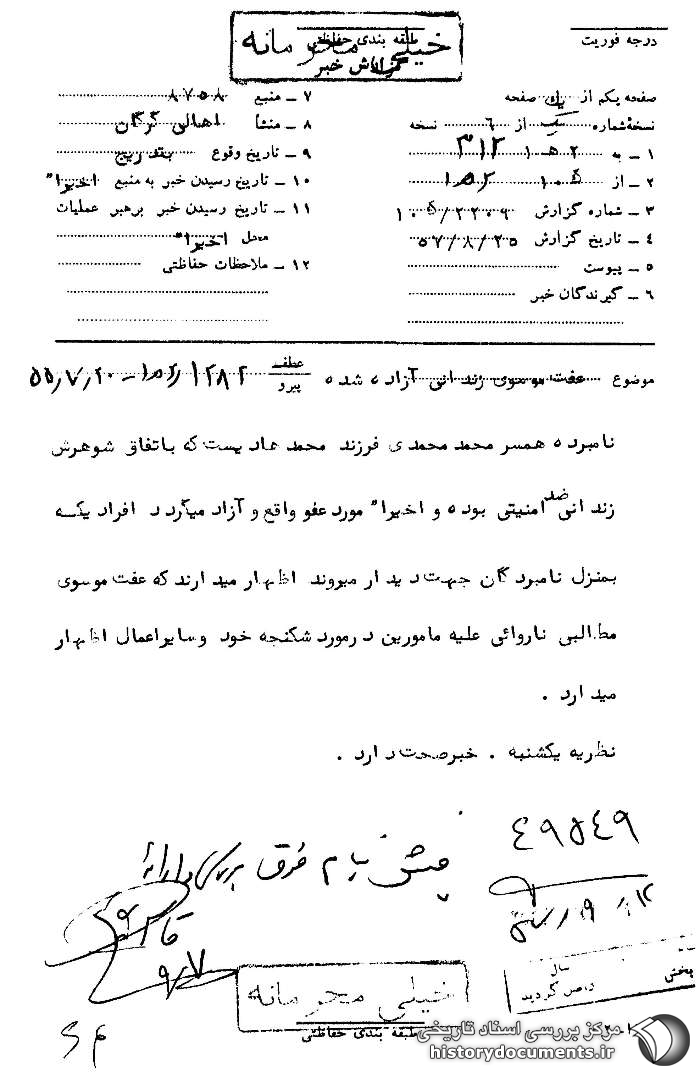 درجه فوریت
خیلی محرمانه
طبقه بندی حفاظتی
گزارش خبر
صفحه یکم از یک صفحه
نسخهٔ شماره یک از ۶ نسخه
۱ ـ به ۲ هـ ۱ ۳۱۲
۲ ـ از ۱۰ هـ ۱۵۲
۳ ـ شماره گزارش ۱۰۵/۲۲۰۹
۴ ـ تاریخ گزارش ۵۷/۸/۲۵
۵ ـ پیوست
۶ ـ گیرندگان خبر
۷ ـ منبع ۸۷۵۸
۸ ـ منشأ اهالی گرگان
۹ ـ تاریخ وقوع بتدریج
۱۰ ـ تاریخ رسیدن خبر به منبع اخیرا"
۱۱ ـ تاریخ رسیدن خبر برهبر عملیات
محل اخیرا"
۱۲ ـ ملاحظات حفاظتی
موضوع عفت موسوی زندانی آزاده شده عطف پیرو ۱۲۸۲
نامبرده همسر محمد محمدی فرزند محمد هادیست که باتفاق شوهرش
زندانی ضد امنیتی بوده و اخیرا" مورد عفو واقع و آزاد میگردد افرادیکه
بمنزل نامبردگان جهت دیدار میروند اظهار میدارند که عفت موسوی
مطالبی ناروائی علیه مامورین درمورد شکنجه خود وسایراعمال اظهار
میدارد .
نظریه یکشنبه . خبرصحت دارد .
۴۹۵۴۹
فوق
۹/۷
سال
بخش
واصل گردید
خیلی محرمانه
طبقه بندی حفاظتی
مرکز بررسی اسناد تاریخی
historydocuments.ir